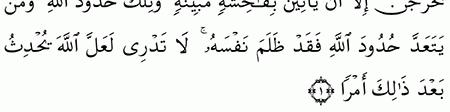 يَخْرُجْنَ إِلَّآ أَن يَأْتِينَ بِفَٰحِشَةٍ مُّبَيِّنَةٍ ۚ وَتِلْكَ حُدُودُ ٱللَّهِ ۚ وَمَن
يَتَعَدَّ حُدُودَ ٱللَّهِ فَقَدْ ظَلَمَ نَفْسَهُۥ ۚ لَا تَدْرِى لَعَلَّ ٱللَّهَ يُحْدِثُ
بَعْدَ ذَٰلِكَ أَمْرًا ﴿١﴾